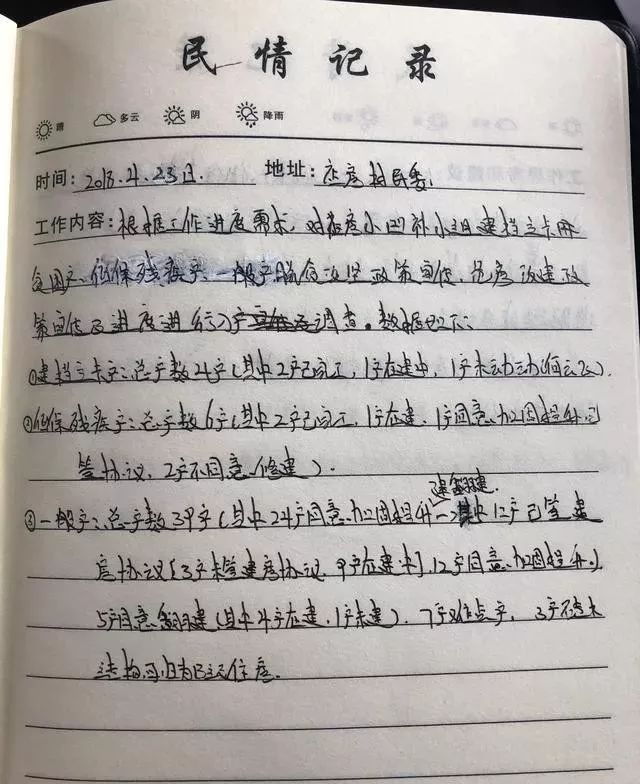 民情记录
晴 多云 阴 降雨
时间：2018.4.23日. 地址：庄房村民委.
工作内容：根据工作进度需求，对庄房小凹补小组建档立卡册
贫困户、低保残疾户、一般户脱贫攻坚政策宣传，危房改建政
策宣传及进度进行入户调查。数据如下：
①建档立卡户：总户数24户（其中2户已完工，1户在建中，1户未动动（何云飞）.
②低保残疾户：总户数6户（其中2户已完工，1户在建，1户同意加固提升可
签协议，2户不同意修建）.
建翻建.
③一般户：总户数39户（其中24户同意加固提升一其中12户已签建
房协议〔3户未签建房协议，9户在建中〕，12户同意加固提升.）
5户同意翻建（其中4户在建，1户未建）.7户难点户，3户不是木
结构可归为已定住房.